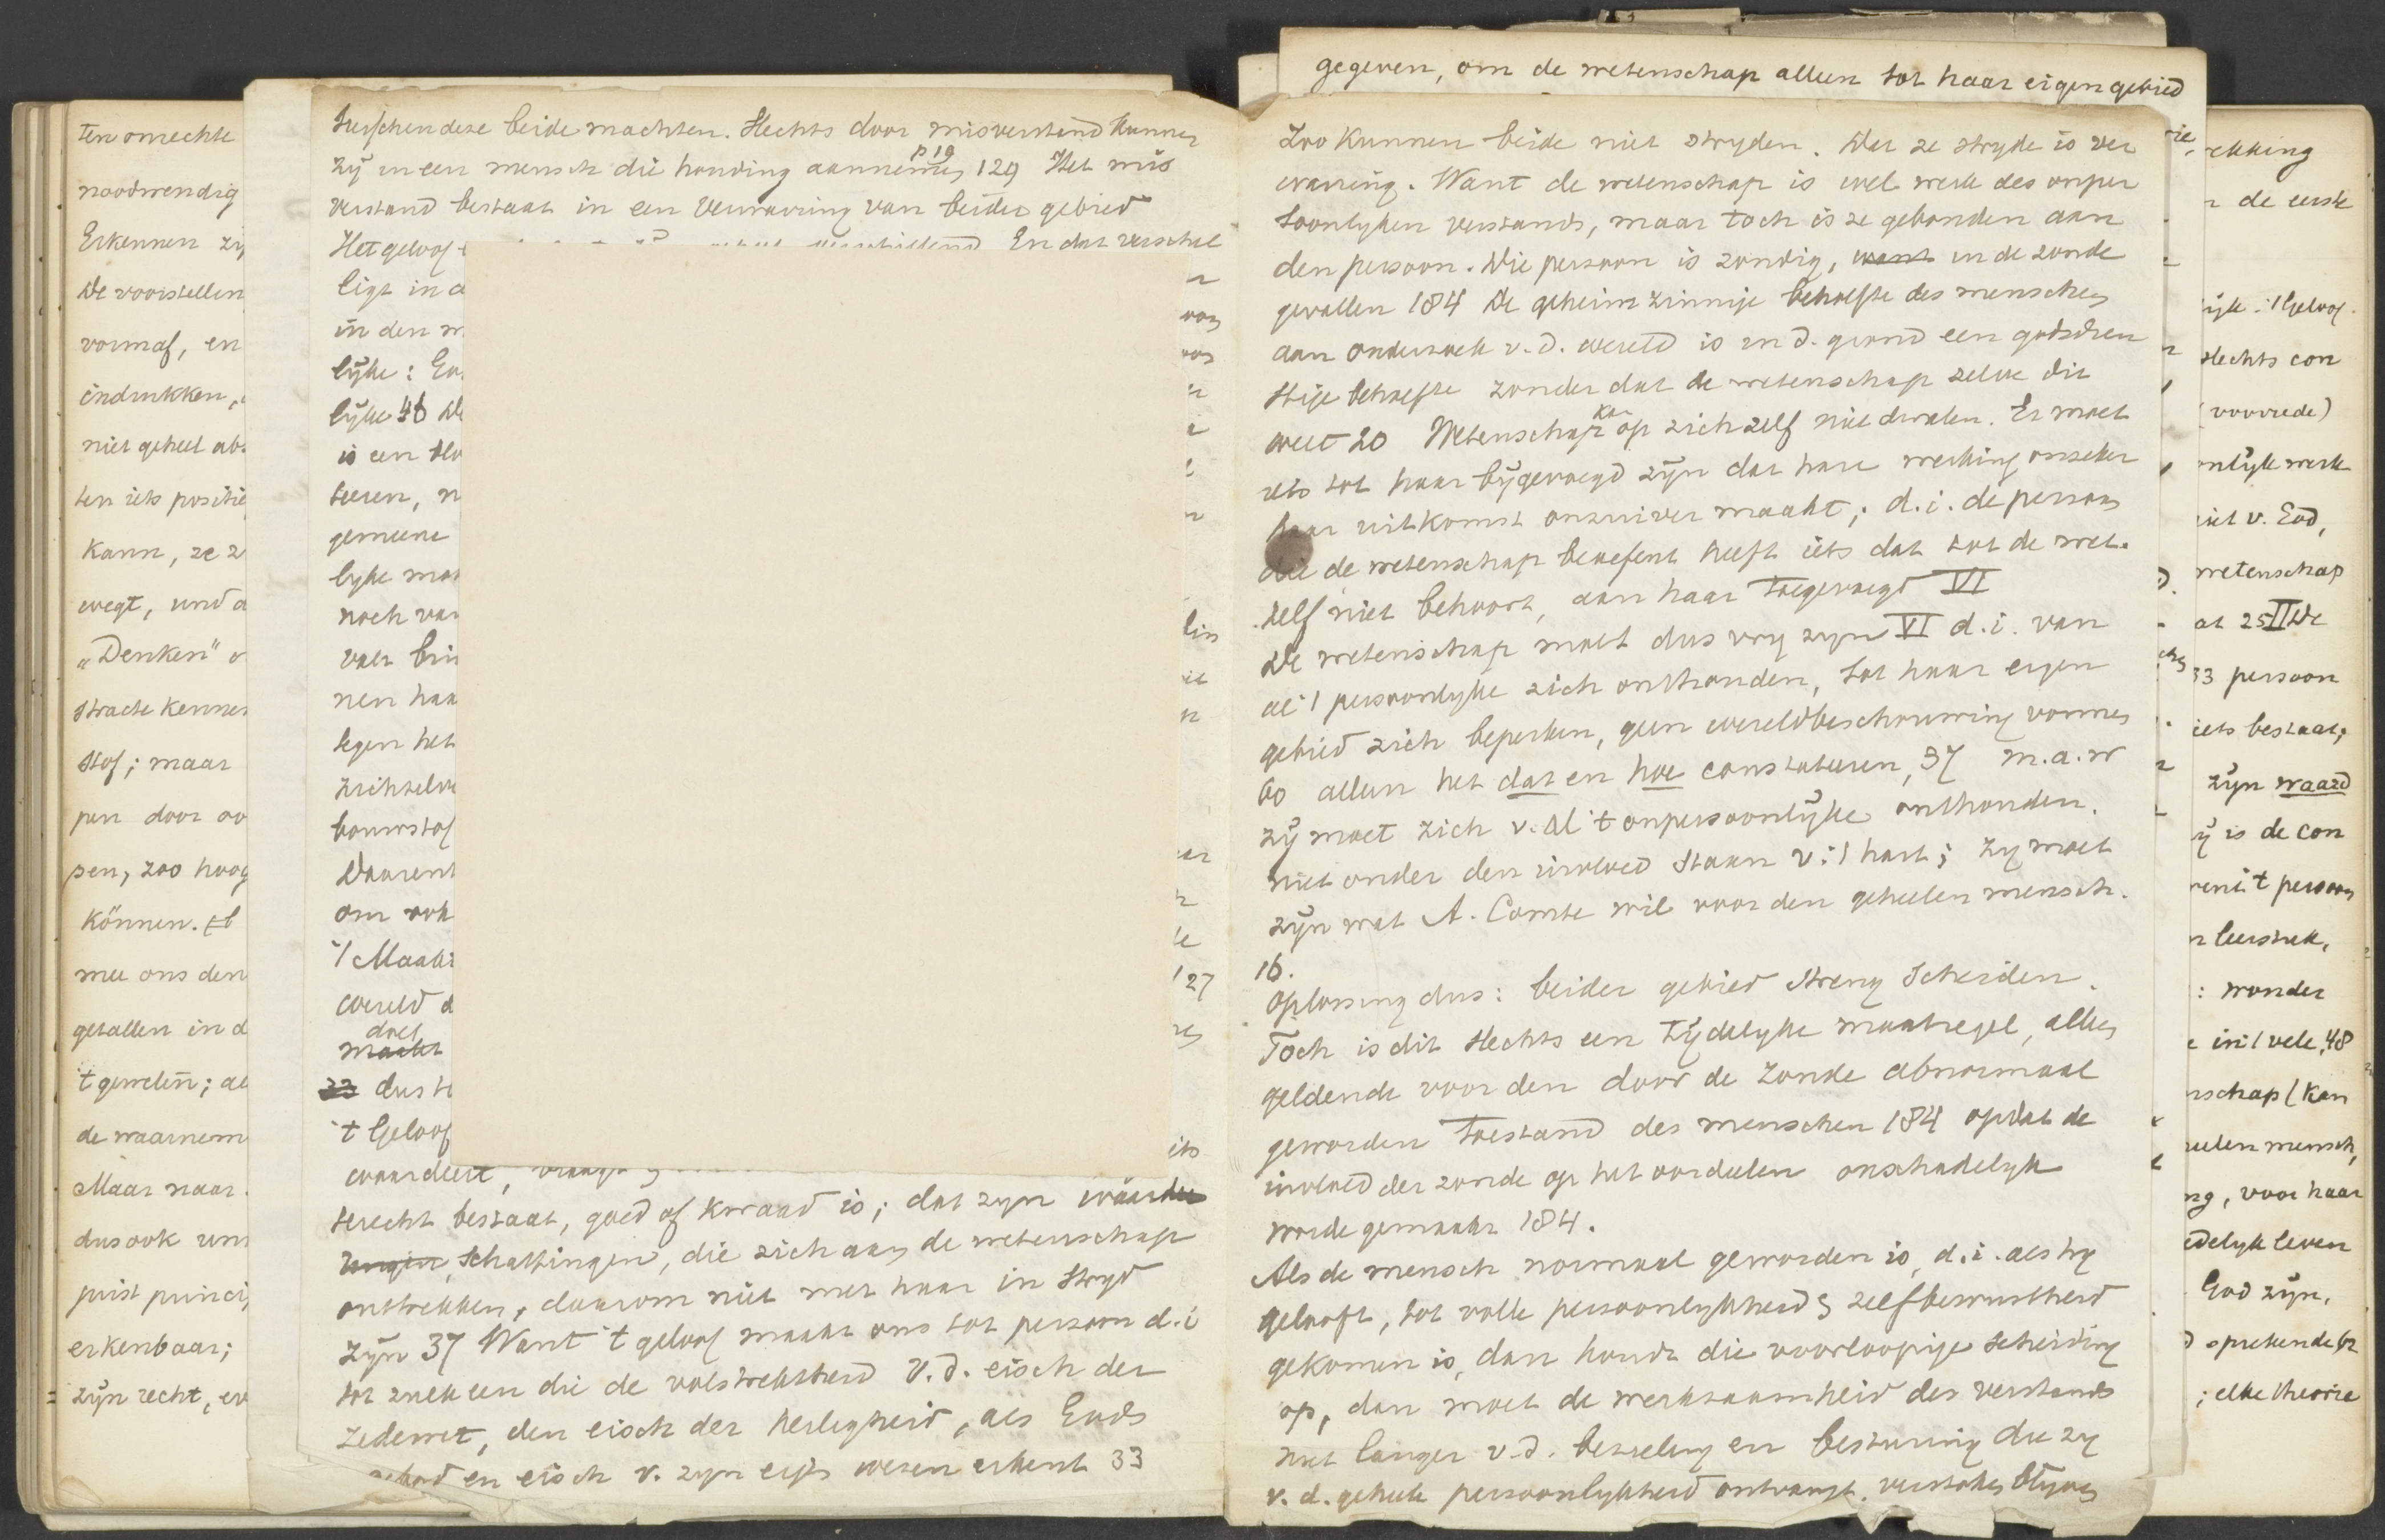 ten onrechte
noodwendig
Erkennen zij
De voorstellin
vormaf, en
indrukken,
niet geheel ab
ten iets positie
Kann, ze z
wegt, und a
„Denken" o
stracte kennen
stof; maar
pen door oo
pen, zoo hoog
können. Eb
mee ons den
getallen in d
't gewelin; al
de waarnem
Maar naar
dus ook um
juist princi
erkenbaar;
zijn recht, en
tusschen deze beide machten. Slechts door misverstand kunnen
zij in een mensch die houding aannemen p 19 129 Het mis
verstand bestaat in een verwarring van beider gebied
Het geloof verschillend En dat verschil
ligt in d
in den m
lijke: En
lijke 46 De
is een slo
teeren, n
gemeene
lyke mat
noch van
valt brin
nen haa
tegen het
zichzelve
bouwstof
Daarent
om ook
't Maakt
wereld d
doet
macht
33 dus te
't Geloof
waardeert, vraagt
terecht bestaat, goed of kwaad is; dat zijn waarde
ringen, schattingen, die zich aan de wetenschap
onttrekken, daarom niet met haar in stryd
zijn 37 Want 't geloof maakt ons tot persoon d.i
tot zulk een die de volstrektheid v.d. eisch der
zedewet, den eisch der heiligheid, als Gods
gebod en eisch v. zyn eigen wezen erkent 33
van
lin
127
gegeven, om de wetenschap alleen tot haar eigen gebied
Zoo kunnen beide niet stryden. Dat ze stryde is ver
warring. Want de wetenschap is wel werk des onper
soonlyken verstands, maar toch is ze gebonden aan
den persoon. Die persoon is zondig, want in de zonde
gevallen 184 De geheimzinnige behoefte des menschen
aan onderzoek v.d. wereld is in d. grond een godsdien
stige behoefte zonder dat de wetenschap zelve dit
weet 20 Wetenschap kan op zichzelf niet dwalen. Er moet
iets tot haar bijgevoegd zijn dat hare werking onzeker
haar uitkomst onzuiver maakt; d.i. de persoon
die de wetenschap beoefent heeft iets dat tot de wet.
zelf niet behoort, aan haar toegevoegd VI
De wetenschap moet dus vry zyn VI d.i. van
al 't persoonlyke zich onthouden, tot haar eigen
gebied zich beperken, geen wereldbeschouwing vormen
60 alleen het dat en hoe constateeren, 37 m.a.w
zij moet zich v. al 't onpersoonlijke onthouden.
niet onder den invloed staan v. 't hart; zy moet
zijn wat A. Comte wil voor den geheelen mensch.
16.
Oplossing dus: beider gebied streng scheiden.
Toch is dit slechts een tijdelyke maatregel, alleen
geldende voor den door de zonde abnormaal
geworden toestand des menschen 184 opdat de
invloed der zonde op het oordeelen onschadelyk
worde gemaakt 184.
Als de mensch normaal geworden is, d.i. als hy
gelooft, tot volle persoonlykheid & zelfbewustheid
gekomen is, dan houdt die voorloopige scheiding
op, dan moet de werkzaamheid des verstands
niet langer v.d. bezieling en besturing die zy
v.d. geheele persoonlykheid ontvangt, verstoken blijven
rekking
n de eerste
lijk: 't Geloof.
slechts con
(voorrede)
onlijk werk
niet v. God,
wetenschap
at 25 II De
33 persoon
iets bestaat;
zijn waard
ij is de con
't persoon
n leerstuk,
: wonder
e in 't vele, 48
nschap (kan
eelen mensch,
ng, voor haar
edelyk leven
God zijn,
sprekende br
; elke theorie